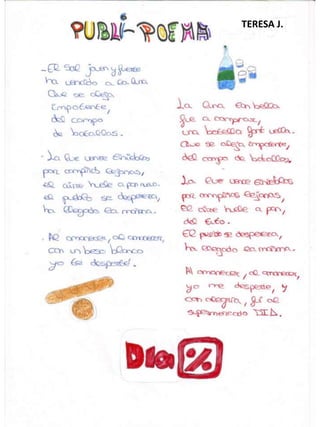 PUBLI-POEMA
TERESA J.
- El Sol joven y fuerte
ha vencido a la luna
Que se aleja
impotente,
del campo
de batallas.
- La luz vence tinieblas
por campiñas lejanas,
el aire huele a pan nuevo
el pueblo se despereza,
ha llegado la mañana.
- Al amanecer, al amanecer,
con un beso blanco
yo te desperté.
La luna tan bella
fue a comprar,
una botella font vella.
Que se aleja impotente,
del campo de batallas.
La luz vence tinieblas
por campiñas lejanas,
el aire huele a pan,
del
El pueblo se despereza,
ha llegado la mañana.
Al amanecer, al amanecer,
yo me desperte, y
con alegría, fui al
supermercado DIA.
Dia %